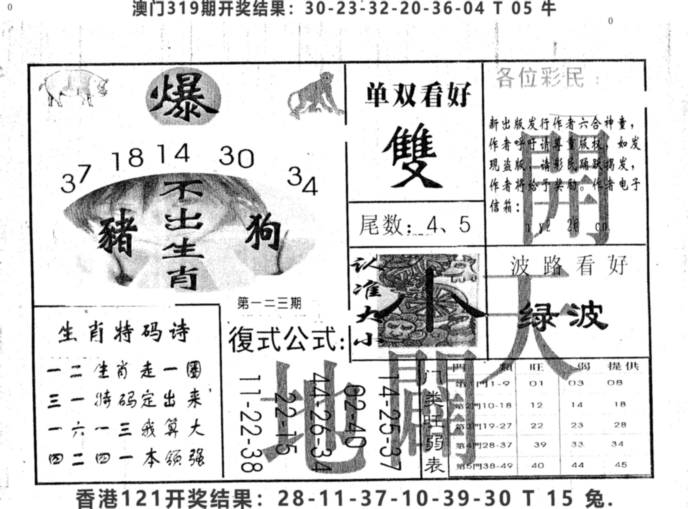 澳门319期开奖结果：30-23-32-20-36-04 T 05 牛
爆
37 18 14 30 34
不出生肖
豬
狗
单双看好
雙
尾数：4、5
各位彩民：
新出版发行作者六合神童，
作者呼吁请尊重版权，如发
现盗版，请彩民踊跃揭发，
作者将给予奖励。作者电子
信箱：
第一二三期
生肖特码诗
一二生肖走一圈
三一特码定出来
一六一三我算大
四二四一本领强
復式公式：
11-22-38
22-15
44-26-34
02-40
14-25-37
认准大小
小
波路看好
绿波
天
地
開
闢
门类旺弱表
門 類 旺 弱 提供
第1門1-9 01 03 08
第2門10-18 12 14 18
第3門19-27 22 23 28
第4門28-37 39 33 34
第5門38-49 40 44 45
香港121开奖结果：28-11-37-10-39-30 T 15 兔.